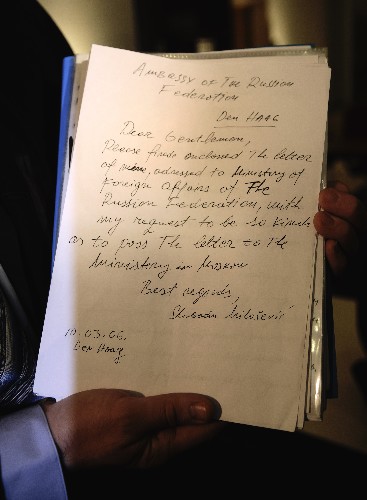 Embassy of The Russian
Federation
Den Haag
Dear Gentleman,
Please finds enclosed The letter
of mine, adressed to Ministery of
Foreign affairs of The
Russian Federation, with
my request to be so kind
as to pass The letter to The
Ministery in Moskow
Best regards,
Slobodan Milošević
10.03.06.
Den Haag